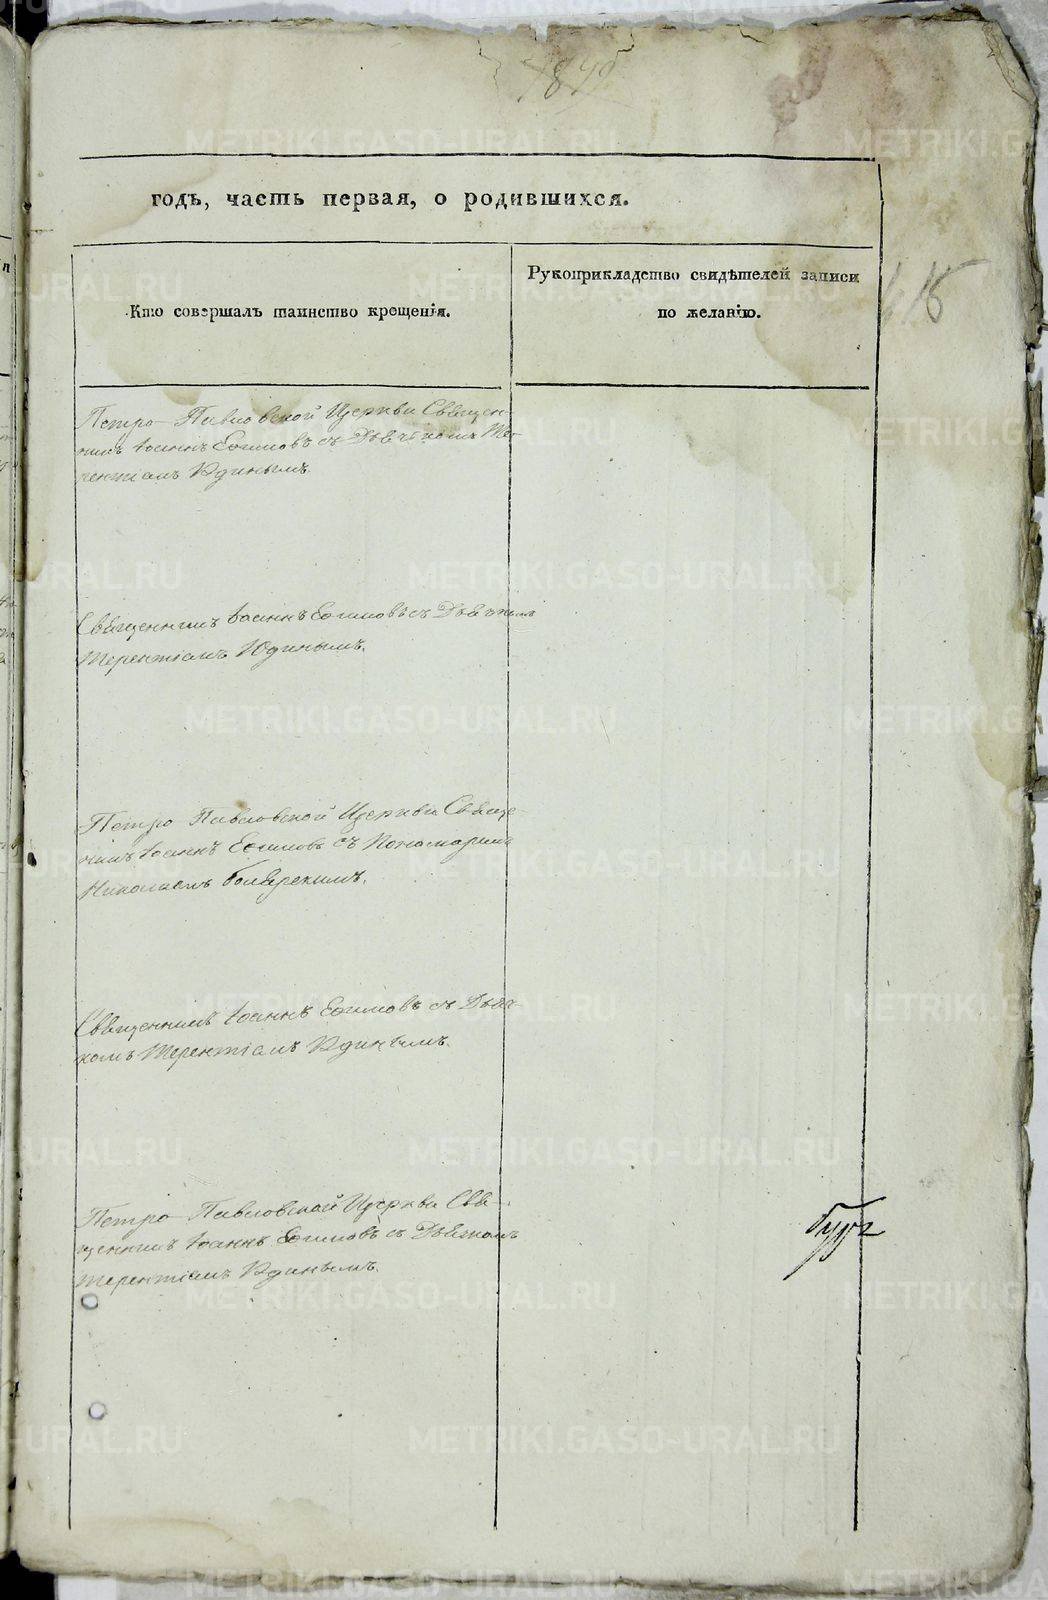 годъ, часть первая, о родившихся.
Кто совершалъ таинство крещенія.
Рукоприкладство свидѣтелей записи
по желанію.
Петро Павловской Церкви Священ-
никъ Іоаннъ Ефимовъ съ Дьячкомъ Те-
рентіемъ Юдинымъ.
Священникъ Іоаннъ Ефимовъ съ Дьячкомъ
Терентіемъ Юдинымъ.
Петро Павловской Церкви Священ-
никъ Іоаннъ Ефимовъ съ Пономаремъ
Николаемъ
Священникъ Іоаннъ Ефимовъ съ Дьяч-
комъ Терентіемъ Юдинымъ.
Петро Павловской Церкви Свя-
щенникъ Іоаннъ Ефимовъ съ Дьячкомъ
Терентіемъ Юдинымъ.
METRIKI.GASO-URAL.RU